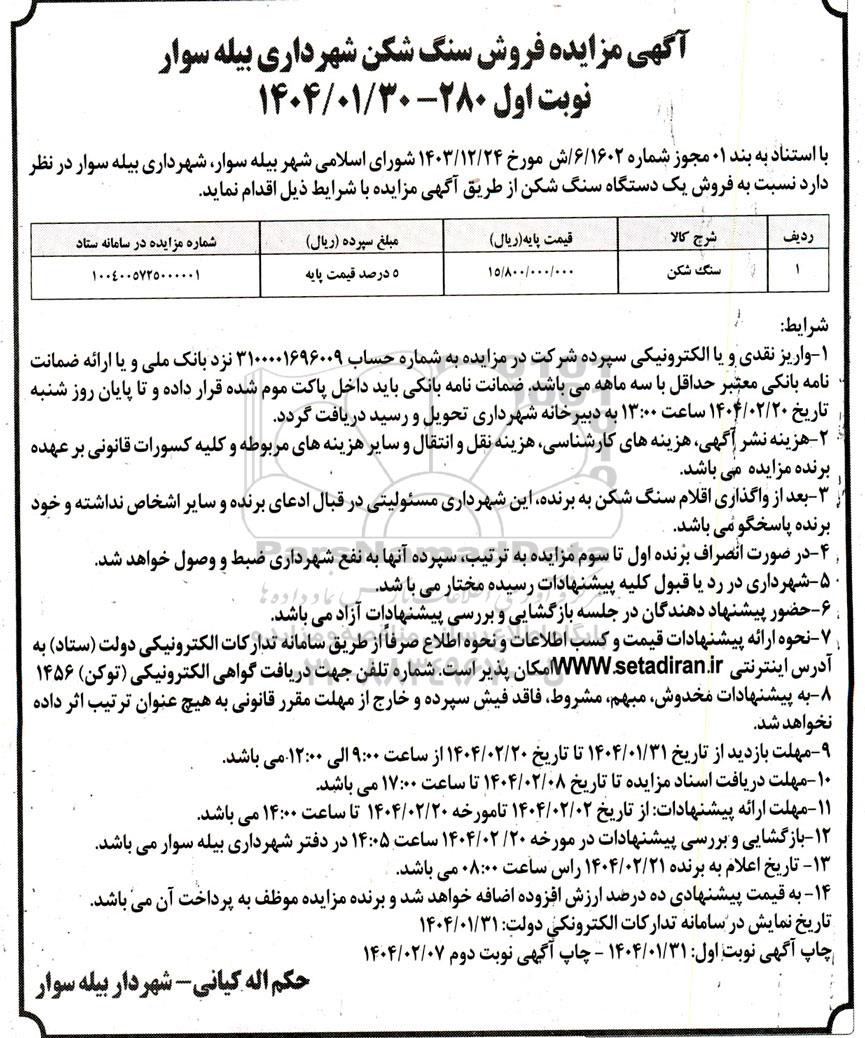 آگهی مزایده فروش سنگ شکن شهرداری بیله سوار
نوبت اول ۲۸۰- ۱۴۰۴/۰۱/۳۰
با استناد به بند ۰۱ مجوز شماره ۶/۱۶۰۲/ش مورخ ۱۴۰۳/۱۲/۲۴ شورای اسلامی شهر بیله سوار، شهرداری بیله سوار در نظر
دارد نسبت به فروش یک دستگاه سنگ شکن از طریق آگهی مزایده با شرایط ذیل اقدام نماید.
ردیف شرح کالا قیمت پایه(ریال) مبلغ سپرده (ریال) شماره مزایده در سامانه ستاد
۱ سنگ شکن ۱۵/۸۰۰/۰۰۰/۰۰۰ ۵ درصد قیمت پایه ۱۰۰٤۰۰۵۷۲۵۰۰۰۰۰۱
شرایط:
۱-واریز نقدی و یا الکترونیکی سپرده شرکت در مزایده به شماره حساب ۳۱۰۰۰۰۱۶۹۶۰۰۹ نزد بانک ملی و یا ارائه ضمانت
نامه بانکی معتبر حداقل با سه ماهه می باشد. ضمانت نامه بانکی باید داخل پاکت موم شده قرار داده و تا پایان روز شنبه
تاریخ ۱۴۰۴/۰۲/۲۰ ساعت ۱۳:۰۰ به دبیرخانه شهرداری تحویل و رسید دریافت گردد.
۲-هزینه نشر آگهی، هزینه های کارشناسی، هزینه نقل و انتقال و سایر هزینه های مربوطه و کلیه کسورات قانونی بر عهده
برنده مزایده می باشد.
۳-بعد از واگذاری اقلام سنگ شکن به برنده، این شهرداری مسئولیتی در قبال ادعای برنده و سایر اشخاص نداشته و خود
برنده پاسخگو می باشد.
۴-در صورت انصراف برنده اول تا سوم مزایده به ترتیب، سپرده آنها به نفع شهرداری ضبط و وصول خواهد شد.
۵-شهرداری در رد یا قبول کلیه پیشنهادات رسیده مختار می با شد.
۶-حضور پیشنهاد دهندگان در جلسه بازگشایی و بررسی پیشنهادات آزاد می باشد.
۷-نحوه ارائه پیشنهادات قیمت و کسب اطلاعات و نحوه اطلاع صرفاً از طریق سامانه تدارکات الکترونیکی دولت (ستاد) به
آدرس اینترنتی WWW.setadiran.ir امکان پذیر است. شماره تلفن جهت دریافت گواهی الکترونیکی (توکن) ۱۴۵۶
۸-به پیشنهادات مخدوش، مبهم، مشروط، فاقد فیش سپرده و خارج از مهلت مقرر قانونی به هیچ عنوان ترتیب اثر داده
نخواهد شد.
۹-مهلت بازدید از تاریخ ۱۴۰۴/۰۱/۳۱ تا تاریخ ۱۴۰۴/۰۲/۲۰ از ساعت ۹:۰۰ الی ۱۲:۰۰ می باشد.
۱۰-مهلت دریافت اسناد مزایده تا تاریخ ۱۴۰۴/۰۲/۰۸ تا ساعت ۱۷:۰۰ می باشد.
۱۱-مهلت ارائه پیشنهادات: از تاریخ ۱۴۰۴/۰۲/۰۲ تامورخه ۱۴۰۴/۰۲/۲۰ تا ساعت ۱۴:۰۰ می باشد.
۱۲-بازگشایی و بررسی پیشنهادات در مورخه ۱۴۰۴/۰۲/۲۰ ساعت ۱۴:۰۵ در دفتر شهرداری بیله سوار می باشد.
۱۳- تاریخ اعلام به برنده ۱۴۰۴/۰۲/۲۱ راس ساعت ۰۸:۰۰ می باشد.
۱۴- به قیمت پیشنهادی ده درصد ارزش افزوده اضافه خواهد شد و برنده مزایده موظف به پرداخت آن می باشد.
تاریخ نمایش در سامانه تدارکات الکترونکی دولت: ۱۴۰۴/۰۱/۳۱
چاپ آگهی نوبت اول: ۱۴۰۴/۰۱/۳۱ - چاپ آگهی نوبت دوم ۱۴۰۴/۰۲/۰۷
حکم اله کیانی- شهردار بیله سوار
ParsNamadData